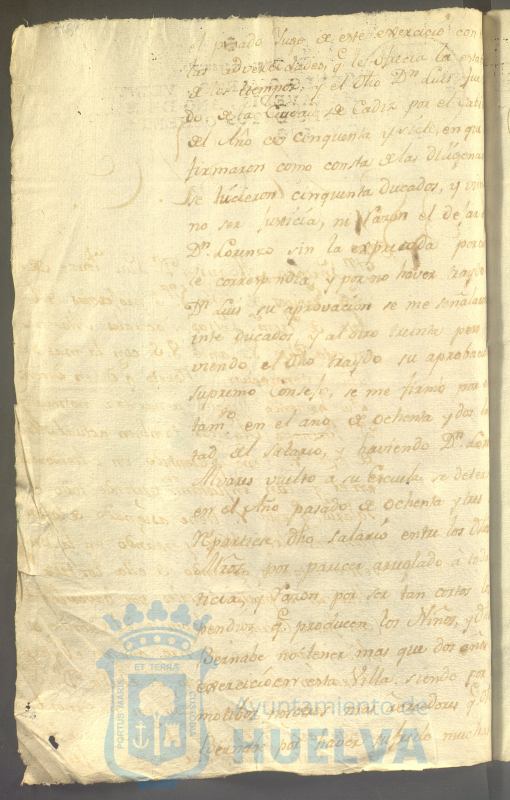 el pasado Juez de este exercicio con
las adversidades, q.e le ofrecia la
de los tiempos, y el dho D.n Luis
do, de la Ciud. de Cadiz por el
del Año de cinquenta y siete, en que
firmaron como consta de las diligen
se hicieron cinquenta ducados, y
no ser justicia, ni razon el dejar
D.n Lorenzo sin la expresada porc
le correspondia y por no haver traydo
D.n Luis su aprovacion se me señala
inte ducados y al otro treinta pero
viendo el dho traydo su aprobac
supremo Consejo, se me firmo
tam.to en el año de ochenta y dos la
tad del Salario, y haviendo D.n Lor
Alvares vuelto à su Escuela se deter
en el Año pasado de ochenta y tres
Repartiese dho salario entre los
Mros, por parecer arreglado à
ticia, y razon por ser tan cortos
pendios q.e producen los Niños, y D.n
Bernabe no tener mas que dos años
exercicio en esta Villa siendo por
motibos nosotros mas acredores q.e
Bernabe por haver sufrido mucho
PORTUS MARIS
ET TERRÆ
CUSTODIA
Ayuntamiento de
HUELVA